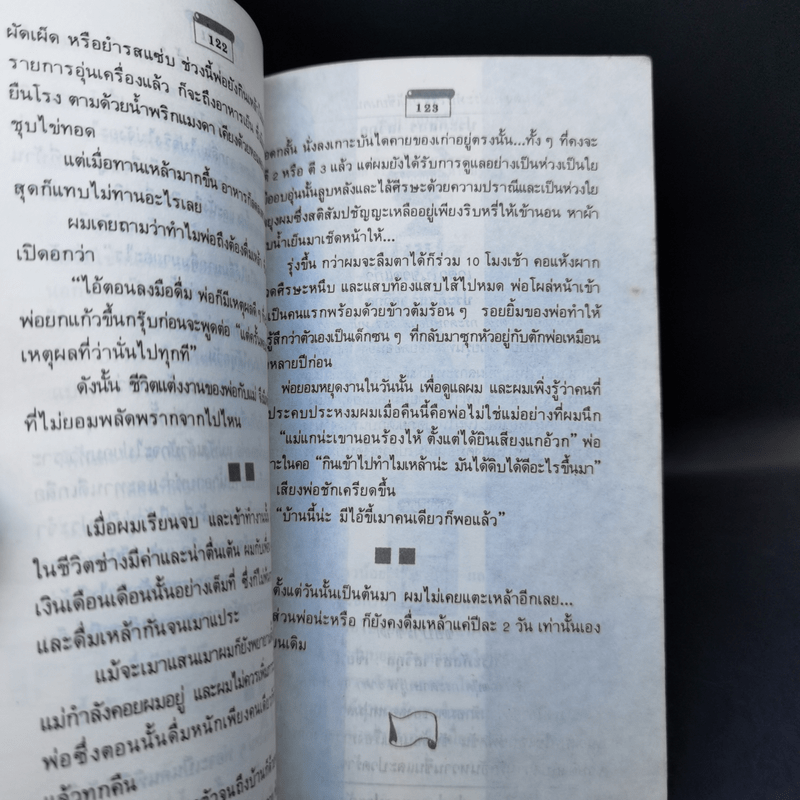 122
ผัดเผ็ด หรือยำรสแซ่บ ช่วงนี้พ่อยังกินเหล้า
รายการอุ่นเครื่องแล้ว ก็จะถึงอาหารเย็น
ยืนโรง ตามด้วยน้ำพริกแมงดา เคียงด้วย
ชุบไข่ทอด
แต่เมื่อทานเหล้ามากขึ้น อาหาร
สุดก็แทบไม่ทานอะไรเลย
ผมเคยถามว่าทำไมพ่อถึงต้องดื่ม
เปิดอกว่า
“ไอ้ตอนลงมือดื่ม พ่อก็มีเหตุผลดี
พ่อยกแก้วขึ้นกรุ๊บก่อนจะพูดต่อ “แต่
เหตุผลที่ว่านั่นไปทุกที”
ดังนั้น ชีวิตแต่งงานของพ่อกับแม่
ที่ไม่ยอมพลัดพรากจากไปไหน
เมื่อผมเรียนจบ และเข้าทำงาน
ในชีวิตช่างมีค่าและน่าตื่นเต้น ผมกับ
เงินเดือนเดือนนั้นอย่างเต็มที่ ซึ่งก็
และดื่มเหล้ากันจนเมาแประ
แม้จะเมาแสนเมาผมก็ยังพยายาม
แม่กำลังคอยผมอยู่ และผมไม่ควร
พ่อซึ่งตอนนั้นดื่มหนักเพียงคนเดียว
แล้วทุกคืน
จนถึงบ้าน
123
อดกลั้น นั่งลงเกาะบันไดคายของเก่าอยู่ตรงนั้น...ทั้ง ๆ ที่คงจะ
ตี 2 หรือ ตี 3 แล้ว แต่ผมยังได้รับการดูแลอย่างเป็นห่วงเป็นใย
อบอุ่นนั้นลูบหลังและไล้ศีรษะด้วยความปราณีและเป็นห่วงใย
ยุงผมซึ่งสติสัมปชัญญะเหลืออยู่เพียงริบหรี่ให้เข้านอน หาผ้า
น้ำเย็นมาเช็ดหน้าให้...
รุ่งขึ้น กว่าผมจะลืมตาได้ก็ร่วม 10 โมงเช้า คอแห้งผาก
ศีรษะหนึบ และแสบท้องแสบไส้ไปหมด พ่อโผล่หน้าเข้า
เป็นคนแรกพร้อมด้วยข้าวต้มร้อน ๆ รอยยิ้มของพ่อทำให้
รู้สึกว่าตัวเองเป็นเด็กซน ๆ ที่กลับมาซุกหัวอยู่กับตักพ่อเหมือน
หลายปีก่อน
พ่อยอมหยุดงานในวันนั้น เพื่อดูแลผม และผมเพิ่งรู้ว่าคนที่
ประคบประหงมผมเมื่อคืนนี้คือพ่อไม่ใช่แม่อย่างที่ผมนึก
“แม่แกน่ะเขานอนร้องไห้ ตั้งแต่ได้ยินเสียงแกอ้วก” พ่อ
ในคอ “กินเข้าไปทำไมเหล้าน่ะ มันได้ดิบได้ดีอะไรขึ้นมา”
เสียงพ่อชักเครียดขึ้น
“บ้านนี้น่ะ มีไอ้ขี้เมาคนเดียวก็พอแล้ว”
ตั้งแต่วันนั้นเป็นต้นมา ผมไม่เคยแตะเหล้าอีกเลย...
ส่วนพ่อน่ะหรือ ก็ยังคงดื่มเหล้าแค่ปีละ 2 วัน เท่านั้นเอง
เดิม